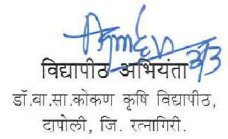 विद्यापीठ अभियंता
डॉ.बा.सा.कोकण कृषि विद्यापीठ,
दापोली, जि. रत्नागिरी.